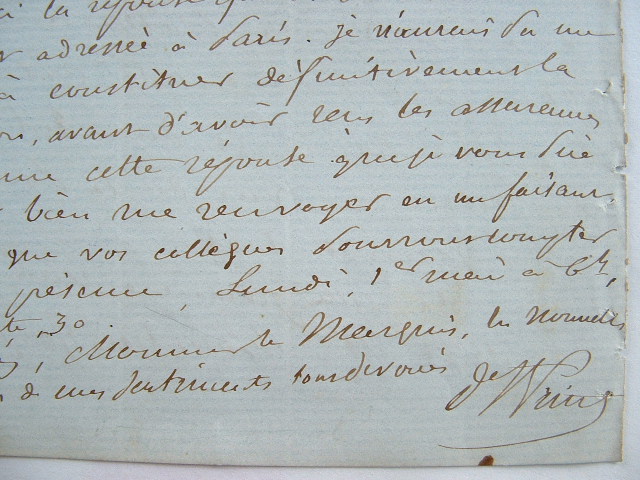 la réponse
adressée à Paris. je n'aurais dû me
à constituer définitivement la
avant d'avoir reçu les assurances
cette réponse que je vous prie
bien me renvoyer en me faisant
que vos collègues pourront compter
présence, Lundi, 1er mai à 6h,
30
Monsieur le Marquis, les nouvelles
de mes sentiments tous dévoués